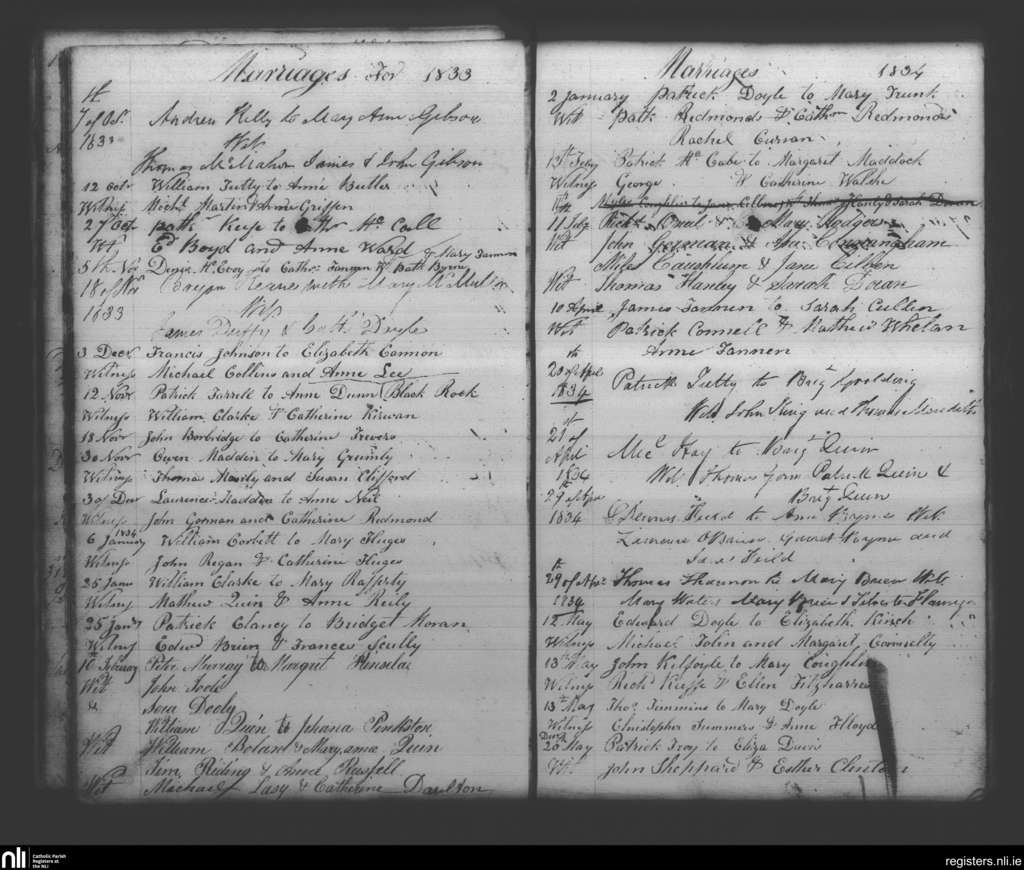 Marriages For 1833
7th of Oct. Andrew Kelly to Mary Anne Gibson
1833 Wit.
Thomas McMahon James & John Gibson
12 Octr William Tutty to Annie Butler
Witness Michl Martin & Anne Griffen
27 Oct Patk Keefe to Cathr Mc Call
Wt Ed Boyd and Anne Ward & Mary Fannon
5th Nov Denis McEvoy to Cathe Fannon Wt Batt Byrne
18 of Nov Bryan Kearns with Mary McMullen
1833 Wit
James Duffy & Cath Doyle
3 Decr Francis Johnson to Elizabeth Cannon
Witness Michael Collins and Anne Lee
12 Novr Patrick Farrell to Anne Dunn Black Rock
Witness William Clarke & Catherine Kirwan
18 Novr John Borbridge to Catherine Trevers
30 Novr Owen Madden to Mary Grumly
Witness Thomas Mardy and Susan Clifford
3 of Decr Lawrence Madden to Anne Neil
Witness John Gorman and Catherine Redmond
6 January 1834 William Corbett to Mary Huges
Witness John Regan & Catherine Huges
25 Janu William Clarke to Mary Rafferty
Witness Mathew Quin & Anne Reily
25 Jany Patrick Clancy to Bridget Moran
Witness Edwd Brien & Frances Scully
10th February Peter Murray to Margret Kinselae
Wit John Toole
" Sera Deely
William Quin to Johana Penkston
Wit William Bolan & Maryanne Quin
Jim Riding & Anne Russell
Wit Michael Lasy & Catherine Daulton
Marriages 1834
2 January Patrick Doyle to Mary Trunk
Wit Patk Redmonds & Cathrn Redmonds
Rachel Curran
13th Feby Patrick Mc Cabe to Margaret Maddock
Witness George & Catherine Walshe
Myles Coughlin to Jane Cullen Wt Thomas Hanly & Sarah Doran
11 Feby Mary Rodgers
Wit John Gorman & Ann Cunningham
Miles Caughlin & Jane Cullen
Wit Thomas Hanley & Sarah Doran
10 April James Fannen to Sarah Cullen
Wit Patrick Connell & Mathew Whelan
Anne Fannen
20th of April
1834 Patrick Tutty to Brigt Spolding
Wit John King and Thomas Meredith
21st of
April Mic Hay to Brigt Quin
1834 Wit Thomas Patrick Quin &
27th of Apr Brigt Quin
1834 Dennis Field to Ann Byrne Wit.
Lawrence O'Brien Garret Byrne and
Jane Feild
29th of Apr Thomas Hannon to Mary Brien Wit
1834 Mary Waters Mary Brien
12 May Edward Doyle to Elizabeth Kirsch
Witness Michael Tobin and Margaret Connelly
13th May John Kilfoyle to Mary Coughlin
Witness Richd Keeffe & Ellen Fitzharris
13th May Thos Timmins to Mary Doyle
Witness Christopher Summers & Anne Flloyd
20 May Patrick Troy to Eliza Davis
Wt John Sheppard & Esther Clinton
nli Catholic Parish
Registers at
the NLI
registers.nli.ie